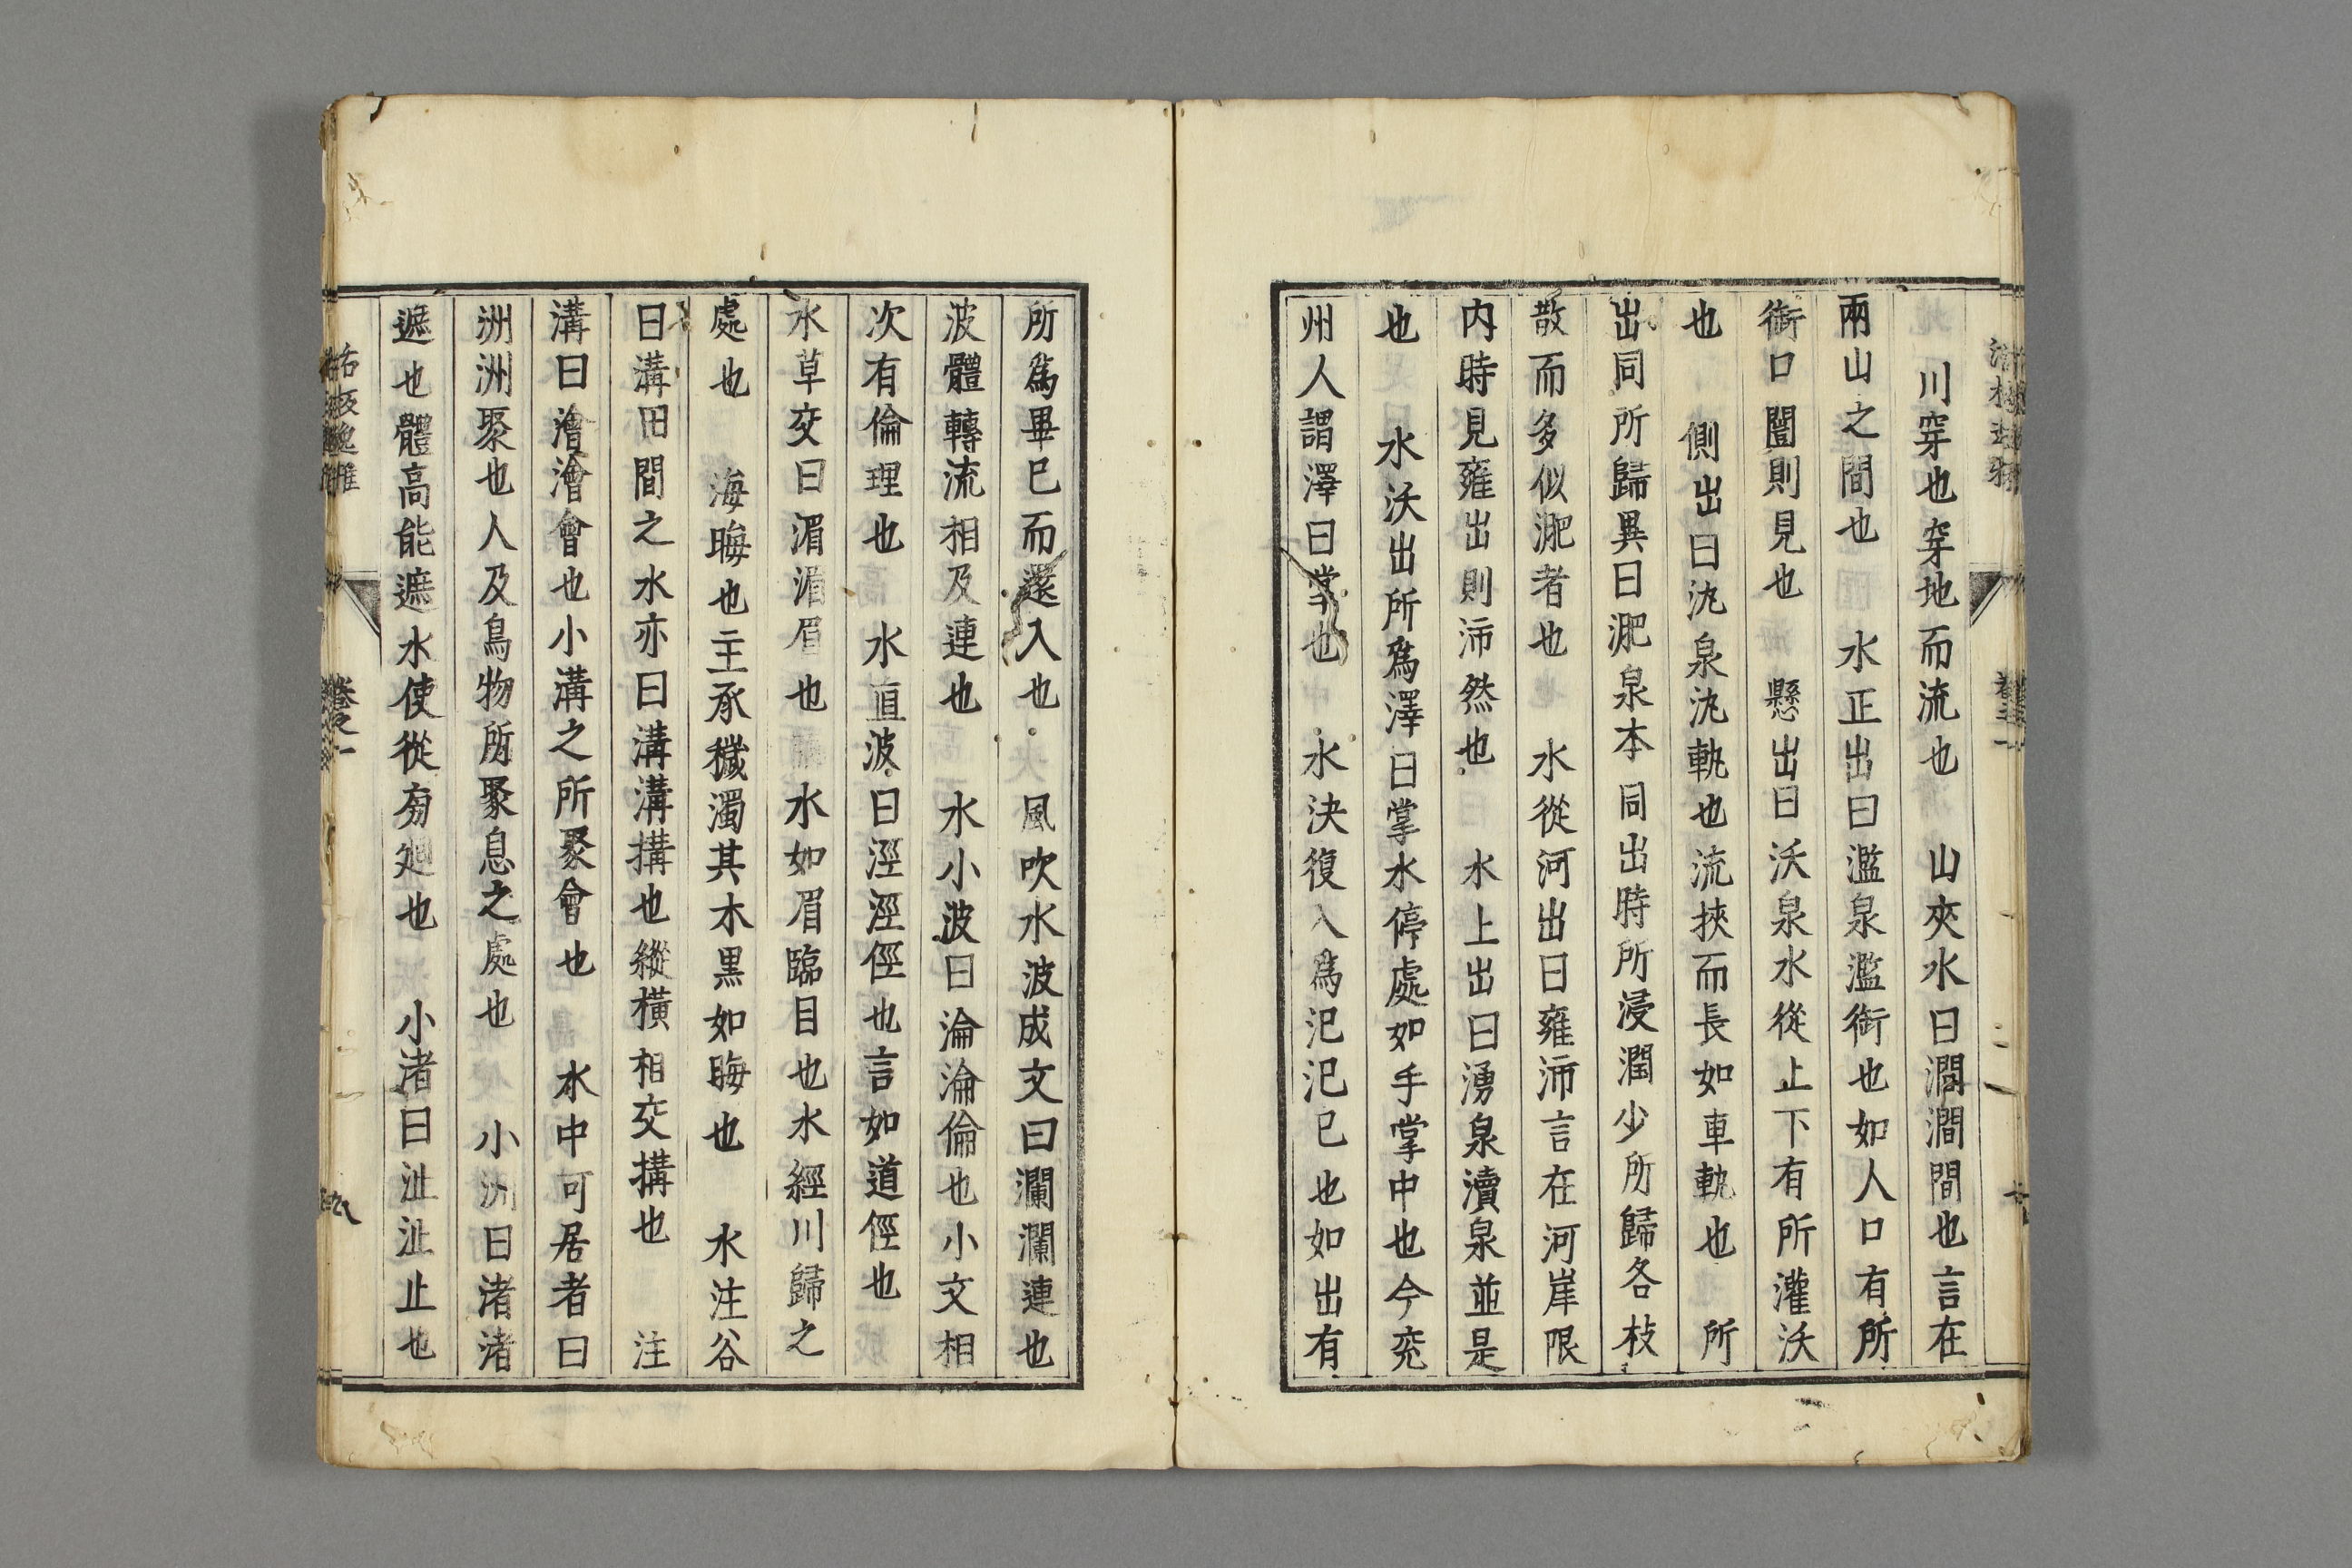 川穿也穿地而流也　山夾水曰澗澗間也言在
兩山之間也　水正出曰濫泉濫銜也如人口有所
銜口闓則見也　懸出曰沃泉水從上下有所灌沃
也　側出曰氿泉氿軌也流挾而長如車軌也　所
出同所歸異曰淝泉本同出時所浸潤少所歸各枝
散而多似淝者也　水從河出曰雍沛言在河岸限
內時見雍出則沛然也　水上出曰湧泉瀆泉並是
也　水沃出所爲澤曰掌水停處如手掌中也今兖
州人謂澤曰掌也　水決復入爲汜汜已也如出有
所爲畢已而還入也　風吹水波成文曰瀾瀾連也
波體轉流相及連也　水小波曰淪淪倫也小文相
次有倫理也　水直波曰涇涇徑也言如道徑也
水草交曰湄湄眉也　水如眉臨目也水經川歸之
處也　海晦也主承穢濁其水黑如晦也　水注谷
曰溝田間之水亦曰溝溝搆也縱橫相交搆也　注
溝曰澮澮會也小溝之所聚會也　水中可居者曰
洲洲聚也人及鳥物所聚息之處也　小洲曰渚渚
遮也體高能遮水使從旁廻也　小渚曰沚沚止也
卷之一
九